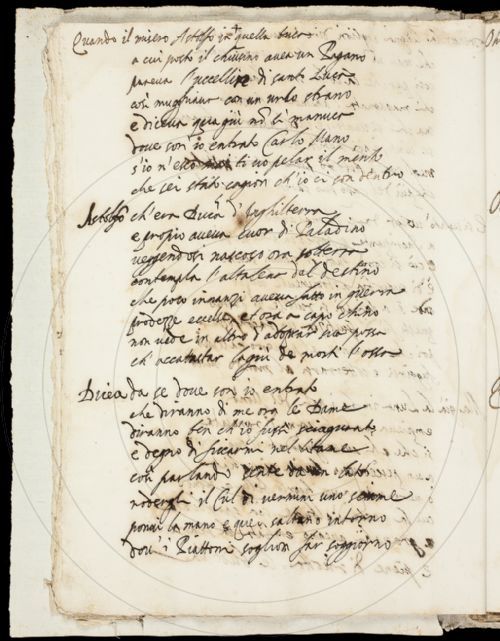 Quando il misero Astolfo in quella buca
a cui posto il chiusino avea un Pagano
pareva di santo Luca
così mugghiava con un urlo strano
e diceva qua giù nō la manuca
dove son io entrato Carlo Mano
s'io n'esco ti vo pelar il mento
che sei stato cagion ch'io ci son dentro
Astolfo ch'era Duca d'Inghilterra
e propio aveva cuor di Paladino
veggendosi nascoso ora sotterra
contempla l'alta del destino
che poco innanzi aveva fatto in guerra
prodezze eccelse, et ora a capo chino
non vede in altro d'adoprar sua possa
ch'accatastar de morti l'ossa
Dicea da se dove son io entrato
che diranno di me ora le Dame
diranno ben ch'io sia sciagurato
e degno di ficcarmi nel letame
così parlando sente da un lato
rodergli il Cul di vermini uno sciame
ponvi la mano e quei saltano intorno
dov'i Piattoni soglion far soggiorno